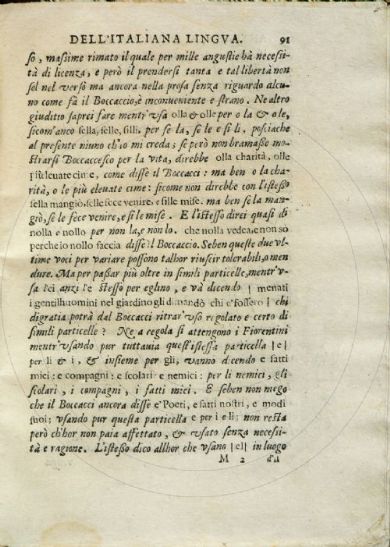 DELL'ITALIANA LINGVA. 91
so, massime rimato il quale per mille angustie hà necessi-
tà di licenza, e però il prendersi tanta e tal libertà non
sol nel verso ma ancora nella prosa senza riguardo alcu-
no come fà il Boccaccio, è inconueniente e strano. Ne altro
giuditio saprei fare mentr'vsa olla & olle per o la & o le,
sicom'anco sella, selle, silli, per se la, se le e si li. posciache
al presente niuno ch'io mi creda; se però non bramasse mo-
strarsi Boccaccesco per la vita, direbbe olla charità, olle
cime, come disse il Boccacci: ma ben o la cha-
rità, o le più eleuate cime: sicome non direbbe con l'istesso
sella mangiò, selle fece venire, e sille mise. ma ben se la man-
giò, se le fece venire, e si le mise. E l'istesso direi quasi di
nolla e nollo per non la, e non lo. che nolla vedea, e non so
perche io nollo faccia disse il Boccaccio. Seben queste due vl-
time voci per variare possono talhor riuscir tolerabili, o men
dure. Ma per passar più oltre in simili particelle, mentr'v-
sa |ei anzi |e stesso per eglino, e và dicendo | menati
i gentilhuomini nel giardino gli dimandò chi e'fossero | chi
di gratia potrà dal Boccacci ritrar'vso regolato e certo di
simili particelle? Ne a regola si attengono i Fiorentini
mentr'vsando pur tuttauia quest'istessa particella |e|
per li & i, & insieme per gli, vanno dicendo e fatti
mici: e compagni: e scolari: e nemici: per li nemici, gli
scolari, i compagni, i fatti mici. E seben non nego
che il Boccacci ancora disse e' Poeti, e fatti nostri, e modi
suoi; vsando pur questa particella e per i e li; non resta
però ch'hor non paia affettato, & vsato senza necessi-
tà e ragione. L'istesso dico allhor che vsano |el| in luogo
M 2